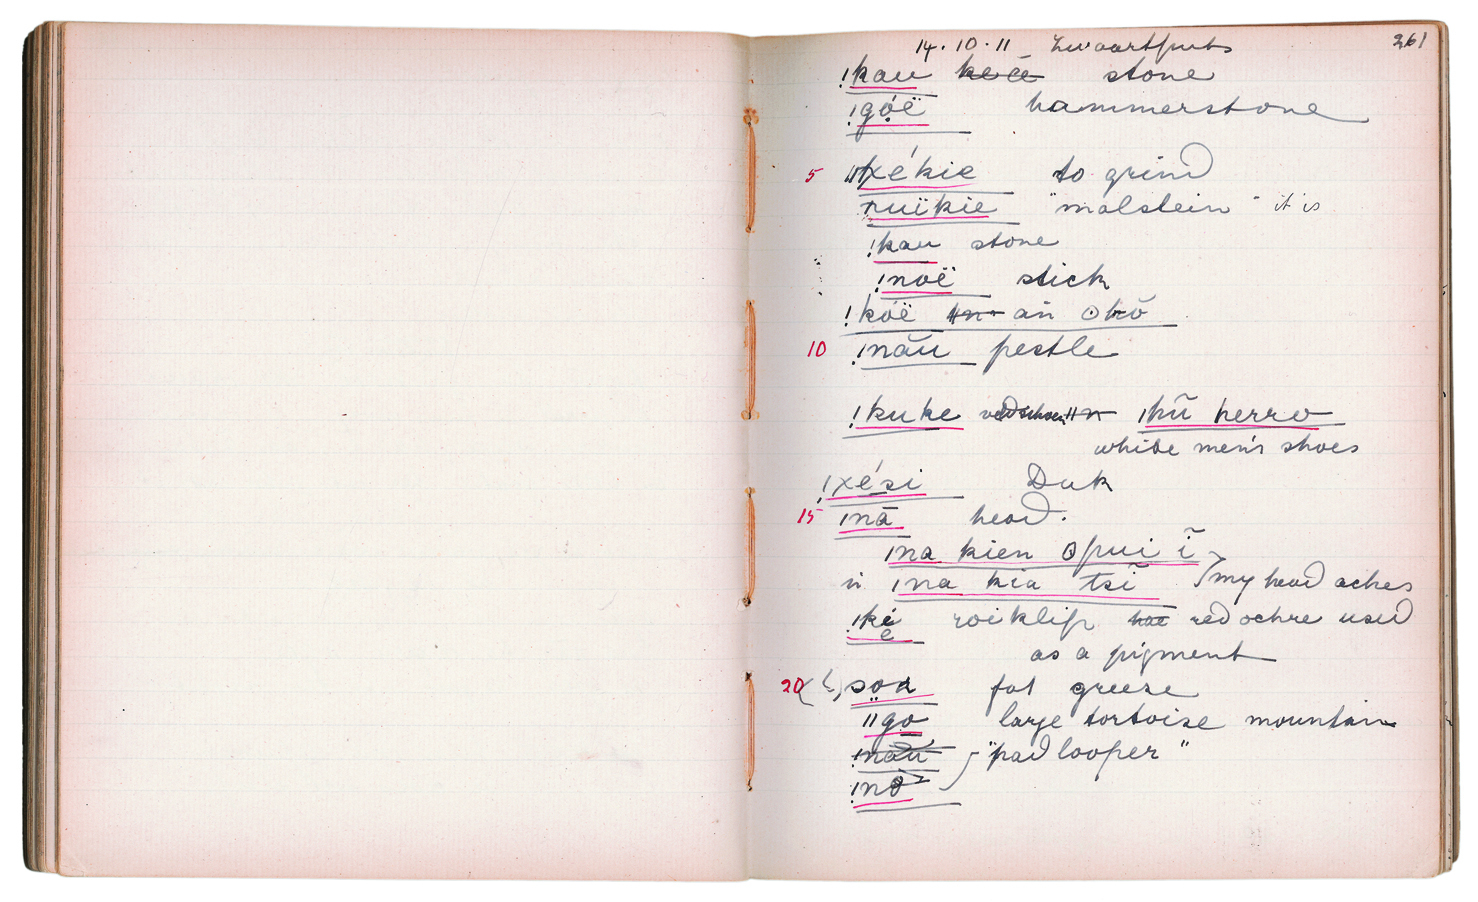 14.10.11 Zwaartputs 261
!kau stone
!góë hammerstone
5 ǁxé'kie to grind
ruïkie "malstein" it is
!kau stone
!noë stick
!kóë ǁn an ʘkō
10 !nāu pestle
!kuke veldschoen ǁn !hũ herro
white men's shoes
!xé'si Dak
15 ǀnā head.
ǀna kien ʘpui ĩ
ň ǀna kia tsĩ my head aches
!ké roiklip red ochre used
e
as a pigment
20 soa fat grease
ǁgo large tortoise mountain
ǀnāu "padlooper"
!no